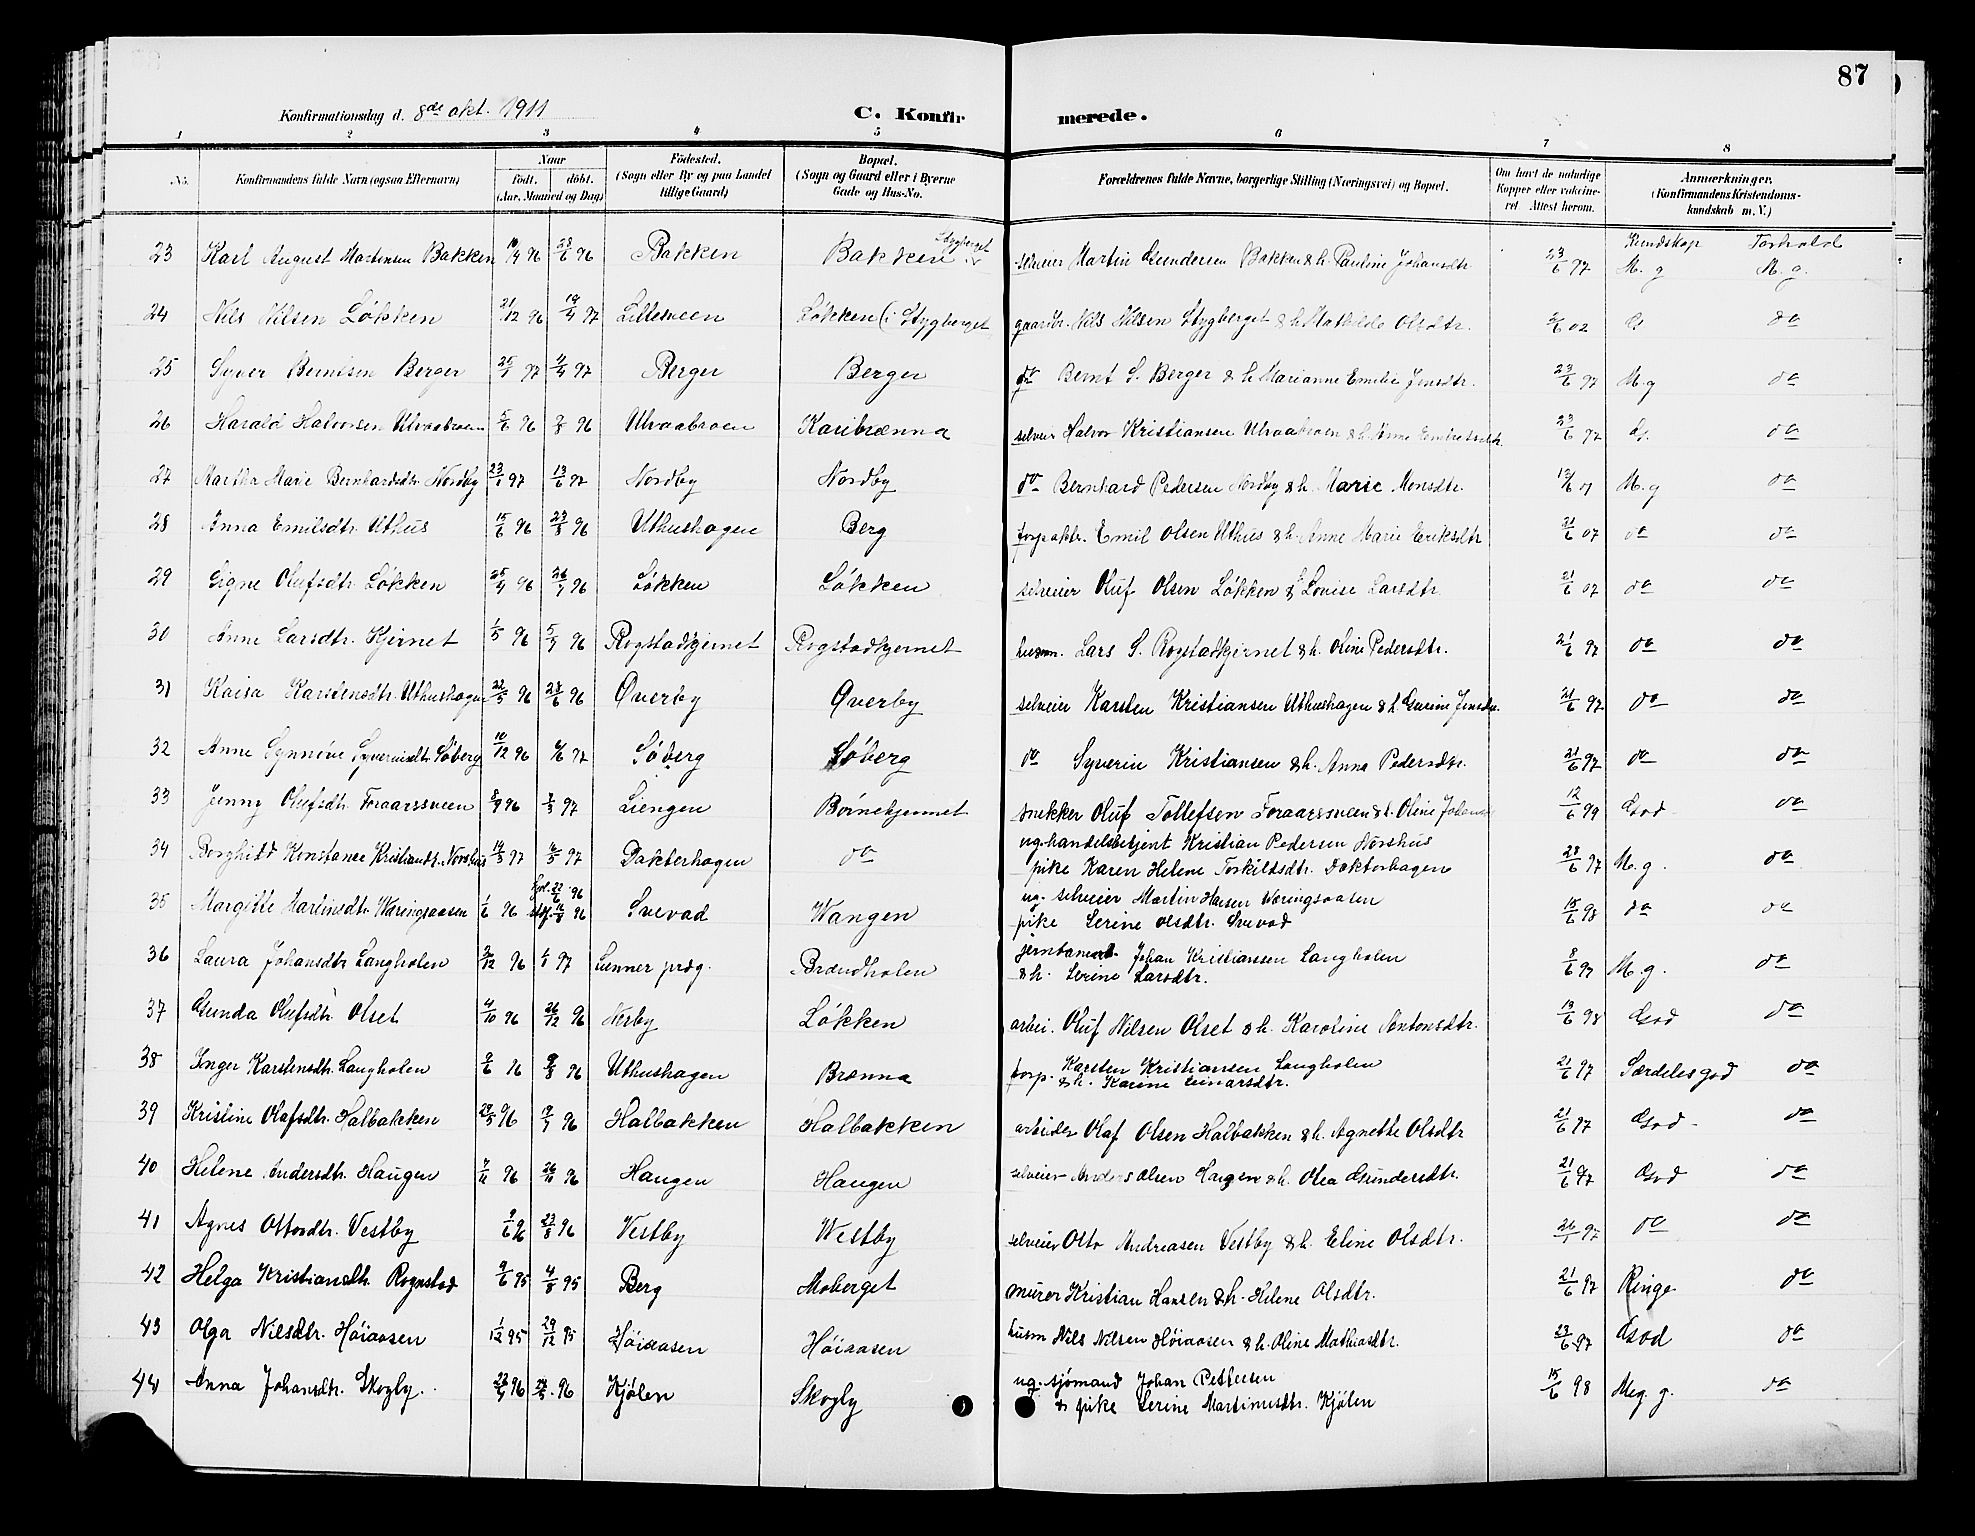 87
Konfirmationsdag d. 8de okt. 1911
C. Konfirmerede.
1 2 3 4 5 6 7 8
No.
Konfirmandens fulde Navn (ogsaa Efternavn)
Naar
født. døbt.
(Aar, Maaned og Dag)
Fødested.
(Sogn eller By og paa Landet
tillige Gaard)
Bopæl.
(Sogn og Gaard eller i Byerne
Gade og Hus-No.
Forældrenes fulde Navne, borgerlige Stilling (Næringsvei) og Bopæl.
Om havt de naturlige
Kopper eller vakcine-
ret Attest herom.
Anmærkninger.
(Konfirmandens Kristendoms-
kundskab m. V.)
Kundskap Forhold
23 Karl August Martinsen Bakken 16/4 96 28/6 96 Bakken Bakken Stygberget selveier Martin Gundersen Bakken & h. Pauline Johansdtr. 23/6 97 M. g M. g.
24 Nils Nilsen Løkken 21/12 96 19/4 97 Lillesveen Løkken (i Stygberget gaardbr. Nils Nilsen Stygberget & h. Mathilde Olsdtr. 02 G do
25 Syver Berntsen Berger 25/1 97 4/4 97 Berger Berger do Bernt S. Berger & h. Marianne Emilie Jensdtr. 23/6 97 M. g do
26 Harald Halvorsen Ulvaabroen 5/6 96 2/8 96 Ulvaabroen Karibrænna selveier Halvor Kristiansen Ulvaabroen & h. Anne 23/6 97 G. do
27 Martha Marie Bernhardsdtr. Nordby 23/1 97 13/6 97 Nordby Nordby do Bernhard Pedersen Nordby & h. Marie Monsdtr. M. g do
28 Anna Emilsdtr. Uthus 15/6 96 23/8 96 Uthushagen Berg forpaktr. Emil Olsen Uthus & h. Anne Marie Eriksdtr 21/6 07 do do
29 Signe Olufsdtr. Løkken 25/4 96 26/7 96 Løkken Løkken selveier Oluf Olsen Løkken & h. Louise Larsdtr. 21/6 07 do do
30 Anne Larsdtr. Kjernet 1/5 96 5/7 96 Rogstadkjernet Rogstadkjernet husm. Lars S. Rogstadkjernet & h. Oline Pedersdtr. 21/6 97 do do
31 Kaisa Karstensdtr. Uthushagen 22/5 96 28/6 96 Øverby Øverby selveier Karsten Kristiansen Uthushagen & h. Gurine Jensdtr. 21/6 97 do do
32 Anne Synnøve Syverinsdtr. Søberg 10/12 96 97 Søberg Søberg do Syverin Kristiansen & h. Anna Pedersdtr. 21/6 97 do do
33 Jenny Olufsdtr. Foraarssveen 8/9 96 7/3 97 Liengen Børnekjernet snekker Oluf Tollefsen Foraarssveen & h. Oline Johansd 12/6 99 God do
34 Borghild Konstance Kristiansdtr. Norshus 14/3 97 16/5 97 Dakterhagen do ug. handelsbetjent Kristian Pedersen Norshus
pike Karen Helene Torkildsdtr. Doktorhagen 28/6 97 M. g. do
35 Margitte Martinsdtr. Wæringsaasen 1/6 96 hjd. 22/6 96 Svevad Wangen ug. selveier Martin Hansen Wæringsaasen
pike Serine Olsdtr. Svevad 15/6 98 do do
36 Laura Johansdtr Langholen 2/12 96 97 Lunner prdg. Brændholen jernbanearb. Johan Kristiansen Langholen
& h. Serine Larsdtr. 8/6 97 M. g. do
37 Gunda Olufsdtr Olset 4/10 96 26/12 96 Nerby Løkken arbei. Oluf Nilsen Olset & h. Karoline Antonsdtr. 13/6 98 God do
38 Inger Karstensdtr. Langholen 2/6 96 9/8 96 Uthushagen Brænna forp. Karsten Kristiansen Langholen
& h. Karine Einarsdtr. 21/6 97 Særdeles god do
39 Kristine Olafsdtr. Halbakken 29/5 96 19/7 96 Halbakken Halbakken arbeider Olaf Olsen Halbakken & h. Agnette Olsdtr 21/6 97 God do
40 Helene Andersdtr. Haugen 96 96 Haugen Haugen selveier Anders Olsen Haugen & h. Olea Gundersdtr. 21/6 97 God do
41 Agnes Ottosdtr. Vestby 9/6 96 23/8 96 Vestby Westby selveier Otto Andreasen Vestby & h. Eline Olsdtr. 26/1 97 do do
42 Helga Kristiansdtr. Rognstad 9/6 95 4/8 95 Berg Moberget murer Kristian Hansen & h. Helene Olsdtr. 21/6 97 Ringe do
43 Olga Nilsdtr. Høiaasen 1/12 95 29/12 95 Høiaasen Høiaasen husm Nils Nilsen Høiaasen & h. Oline Mathiasdtr. 23/6 97 God do
44 Anna Johansdtr. Skogby. 96 96 Kjølen Skogby ug. sjømand Johan Pettersen
& pike Serine Martinusdtr. Kjølen 15/6 98 Meg. g. do